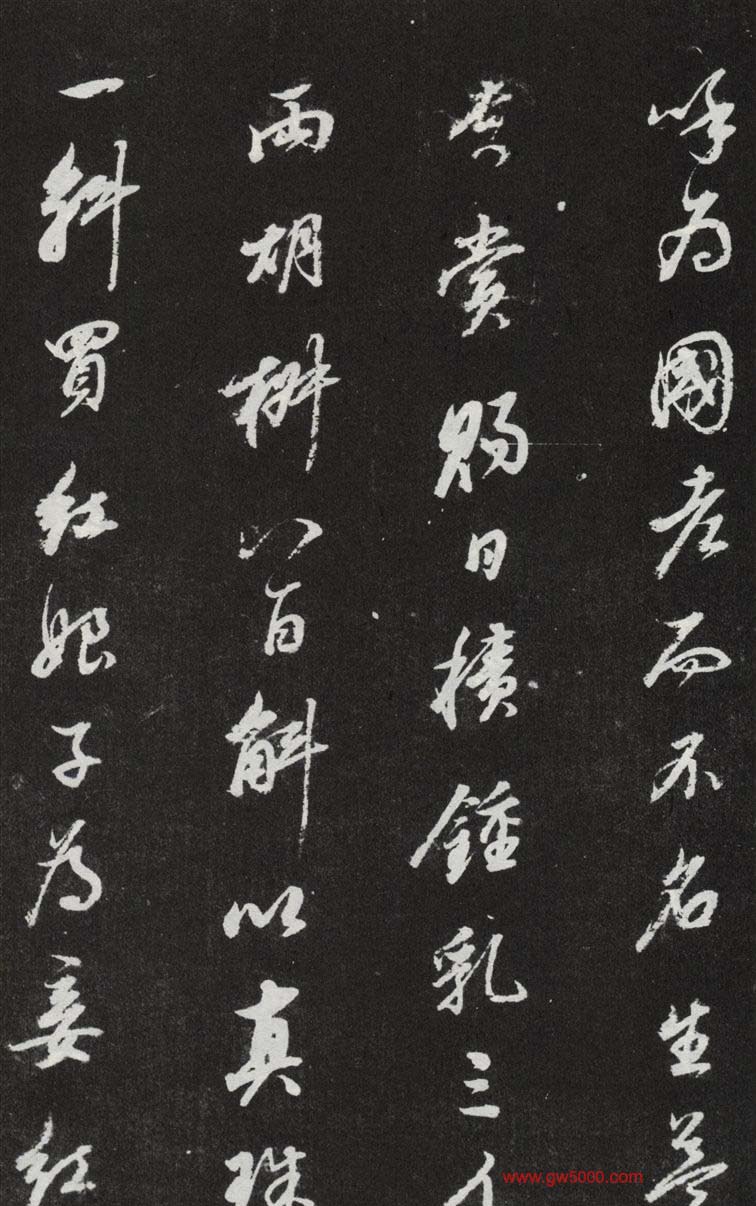 呼为國老而不名生益
貴賞賜日積鍾乳三千
兩胡椒八百斛以真珠
一斛買紅娘子为妾紅
www.gw5000.com